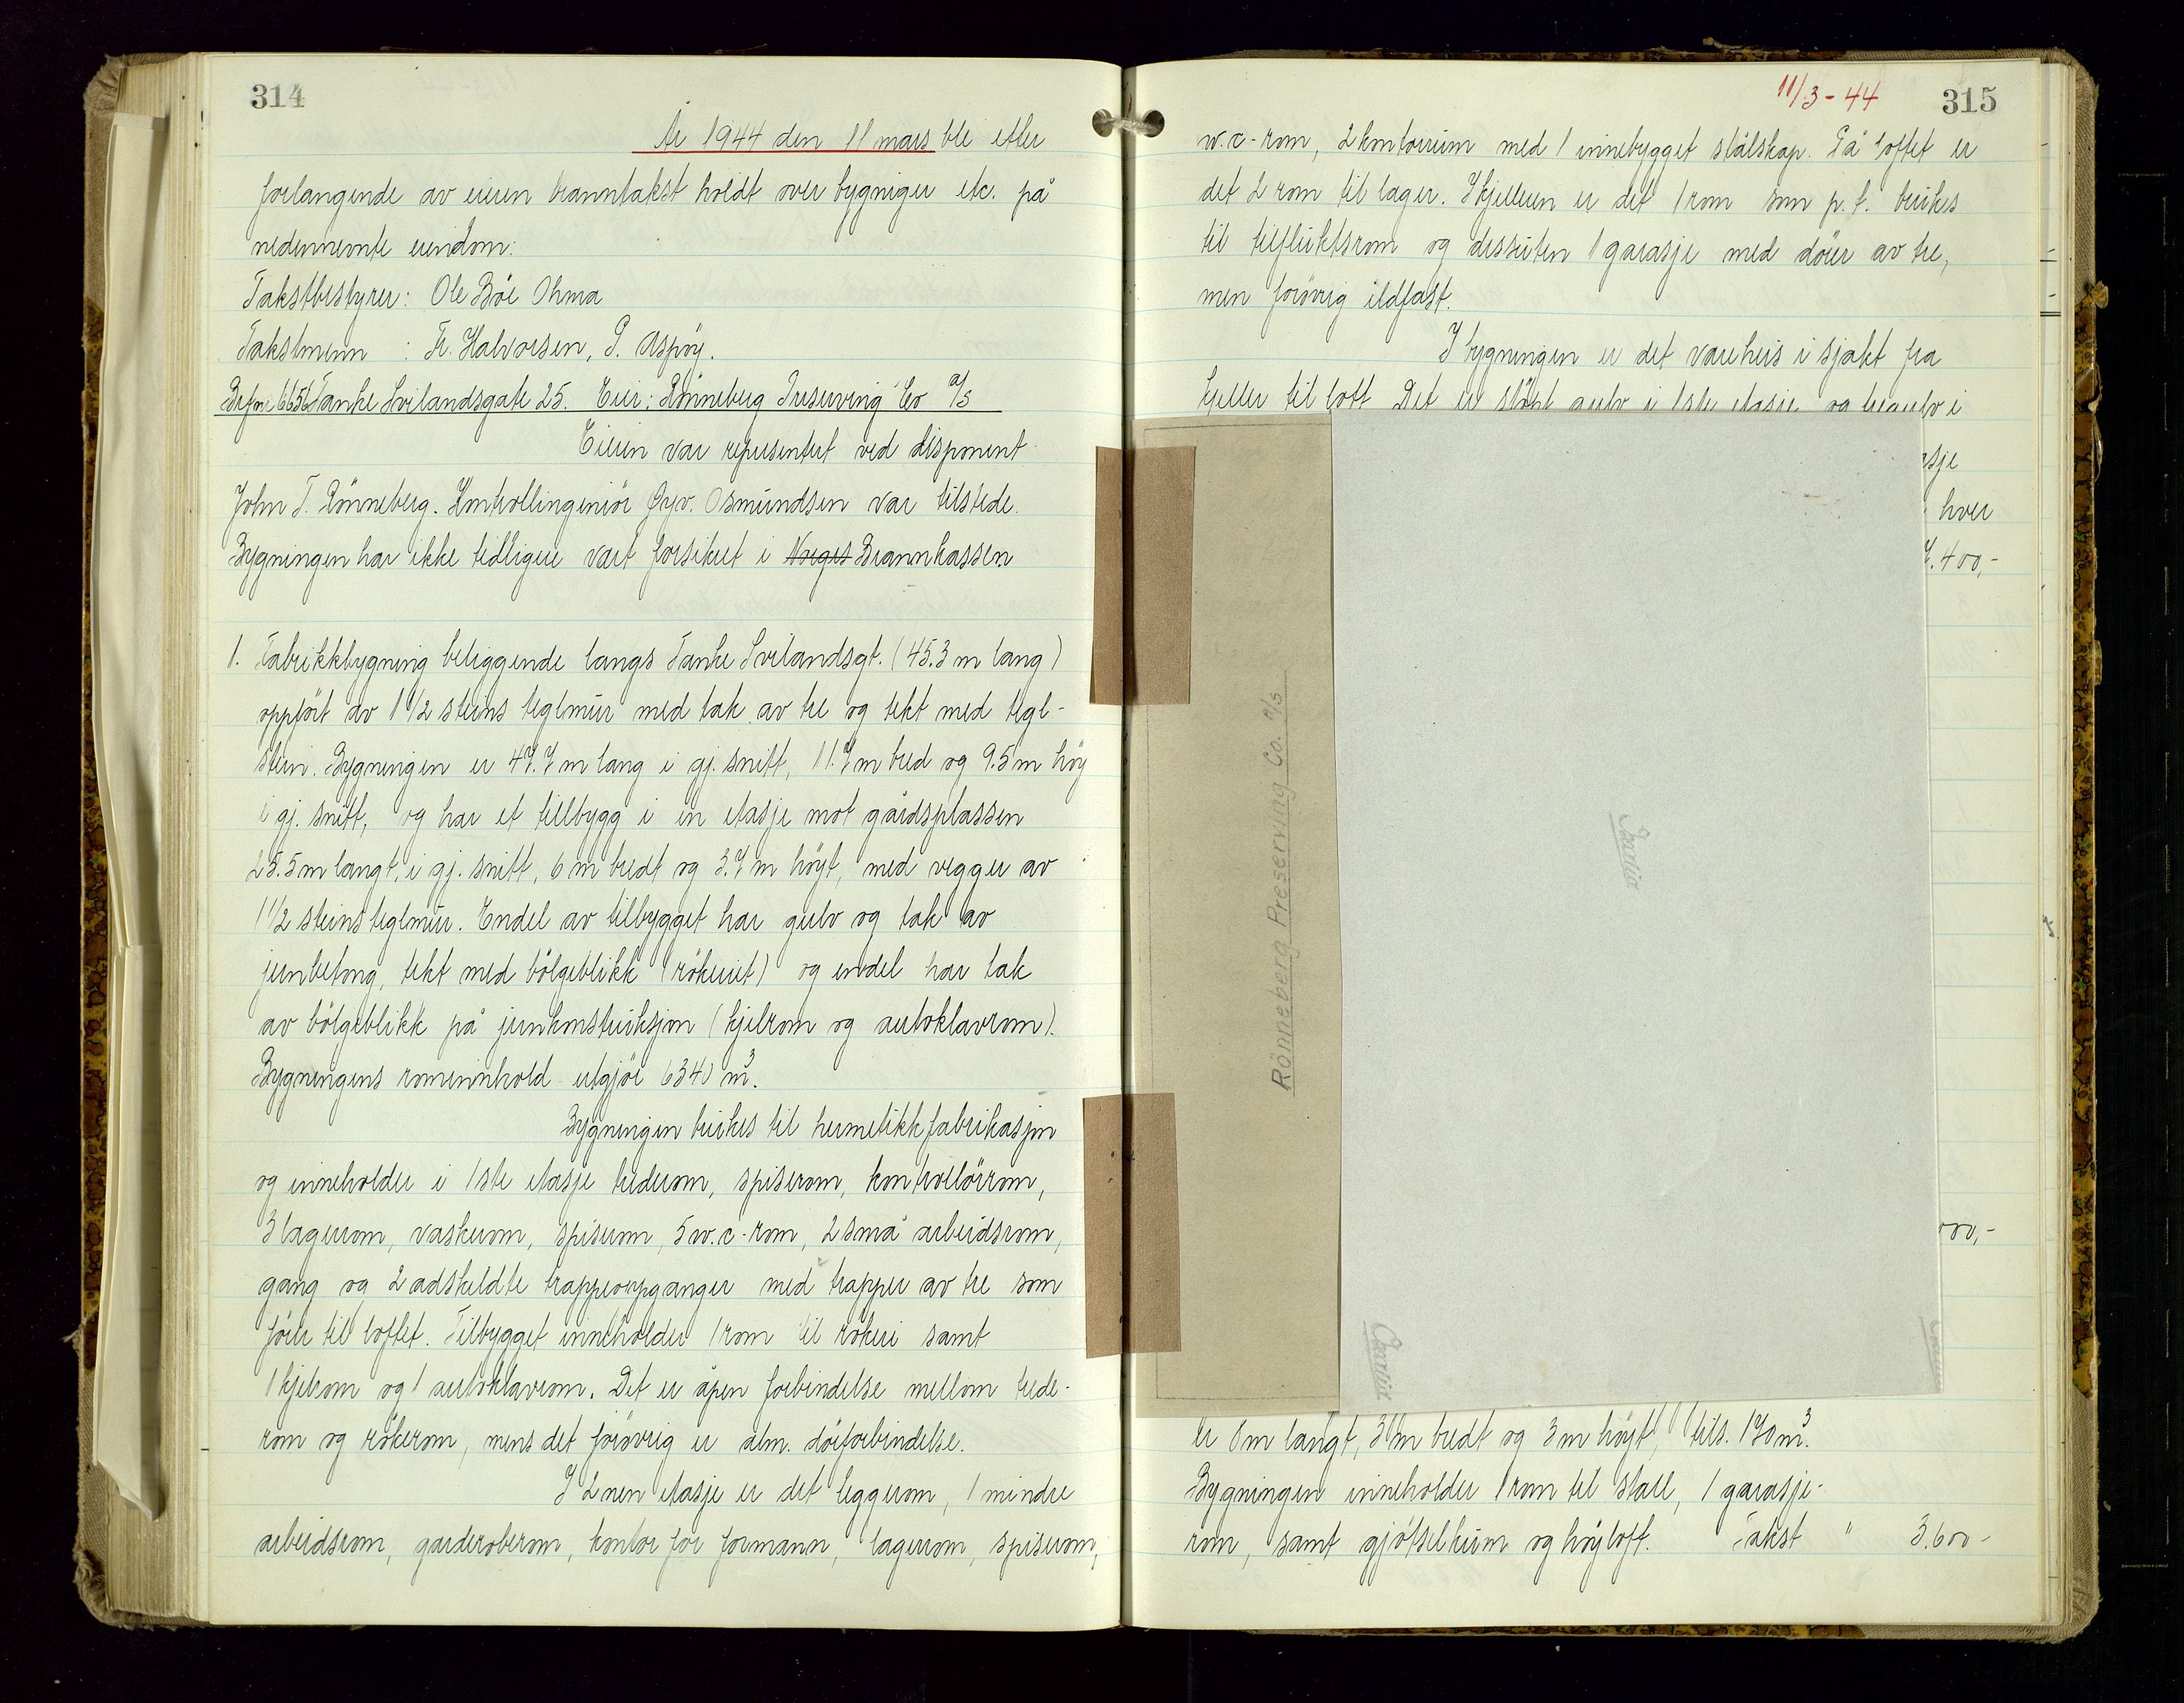 314
År 1944 den 11 mars ble etter
forlangende av eieren branntakst holdt over bygniger etc. på
nedennevnte eiendom:
Takstbestyrer: Ole Böe Ohma
Takstmenn : Fr. Halvorsen, P. Aspöy.
Br.fnr 6656 Tanke Svilandsgate 25. Eier: Rönneberg Preserving Co a/s
Eieren var representert ved disponent
John T. Rönneberg. Kontrollingeniör Öyv. Osmundsen var tilstede.
Bygningen har ikke tidligere vært forsikret i Norges Brannkassen
1. Fabrikkbygning beliggende langs Tanke Svilandsgt. (45.3 m lang)
oppfört av 1 1/2 steins teglmur med tak av tre og tekt med tegl-
stein. Bygningen er 47.7 m lang i gj. snitt, 11.7 m bred og 9.5 m höy
i gj. snitt, og har et tillbygg i en etasje mot gårdsplassen
25.5 m langt, i gj. snitt, 6 m bredt og 3.7 m höyt, med vegger av
1 1/2 steins teglmur. Endel av tilbygget har gulv og tak av
jernbetong, tekt med bölgeblikk (rökeriet) og endel har tak
av bölgeblikk på jernkonstruksjon (kjelrom og autoklavrom).
Bygningens rominnhold utgjör 6340 m3.
Bygningen brukes til hermetikkfabrikasjon
og inneholder i 1ste etasje trederom, spiserom, kontrollörrom,
3 lagerrom, vaskerom, spiserom, 5 w.c-rom, 2 små arbeidsrom,
gang og 2 adskeldte trappeoppganger med trapper av tre som
förer til loftet. Tilbygget inneholder 1 rom til rökeri samt
1 kjelrom og 1 autoklavrom. Det er åpen forbindelse mellom trede-
rom og rökerom, mens det forövrig er alm. dörforbindelse.
I 2nen etasje er det leggerom, 1 mindre
arbeidsrom, garderoberom, kontor for formann, lagerrom, spiserom,
11/3-44 315
w.c-rom, 2 kontorrum med 1 innebygget stålskap. På loftet er
det 2 rom til lager. I kjelleren er det 1 rom som p.t. brukes
til tilfluktsrom og dessuten 1 garasje med dörer av tre,
men forövrig ildfast.
I bygningen er det vareheis i sjakt fra
kjeller til loft. Det er stöpt gulv i 1ste etasje og tregulv i
asje
hver
7.400,-
Rönneberg Preserving Co. A/S
000,-
er 8 m langt, 3 m bredt og 3 m höyt, tils. 170 m3.
Bygningen inneholder 1 rom til stall, 1 garasje-
rom, samt gjötselkum og höyloft. Takst " 3.600-